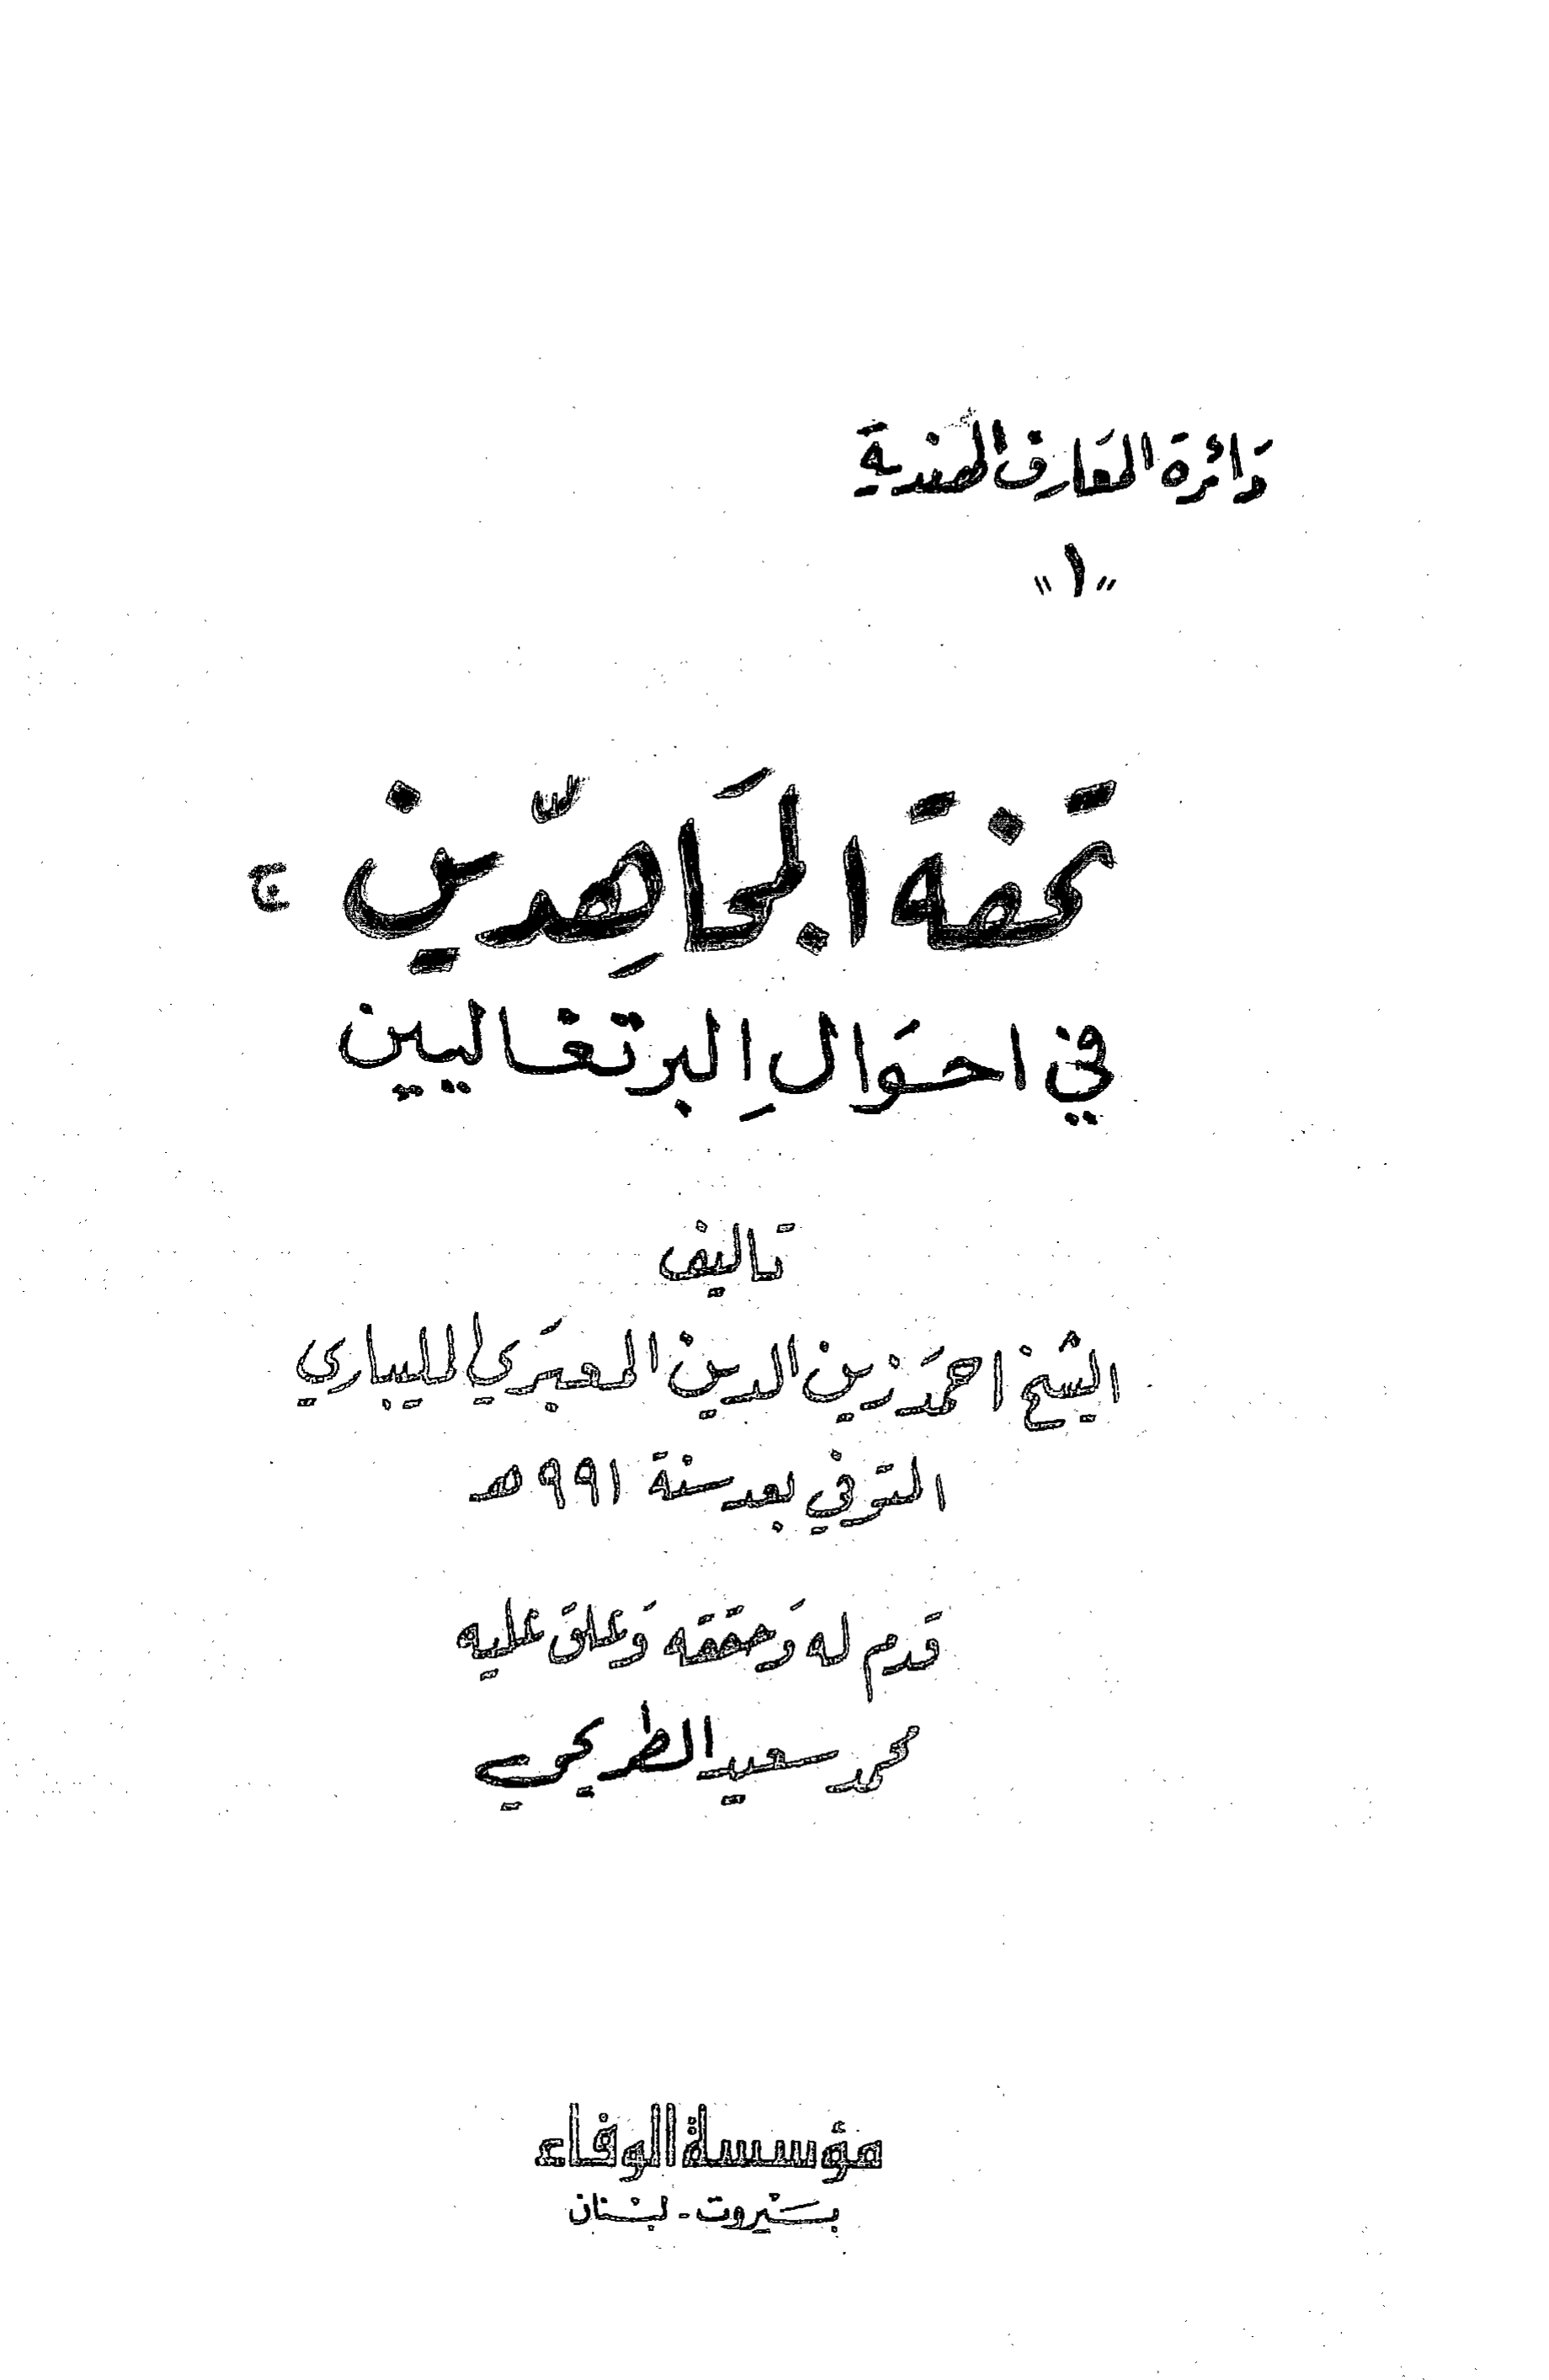 دَائرة المعَارف الهندية
"١"
تحفة المجَاهِدّين
في احوَالِ البرتغاليين
تاليف
الشيخ احمَد زين الدين المعبَري المليباري
المتوفي بعد سنة ٩٩١ هـ
قدم له وَحققه وَعلق عليه
محمد سعيد الطريحي
مؤسسة الوفاء
بيروت - لبنان